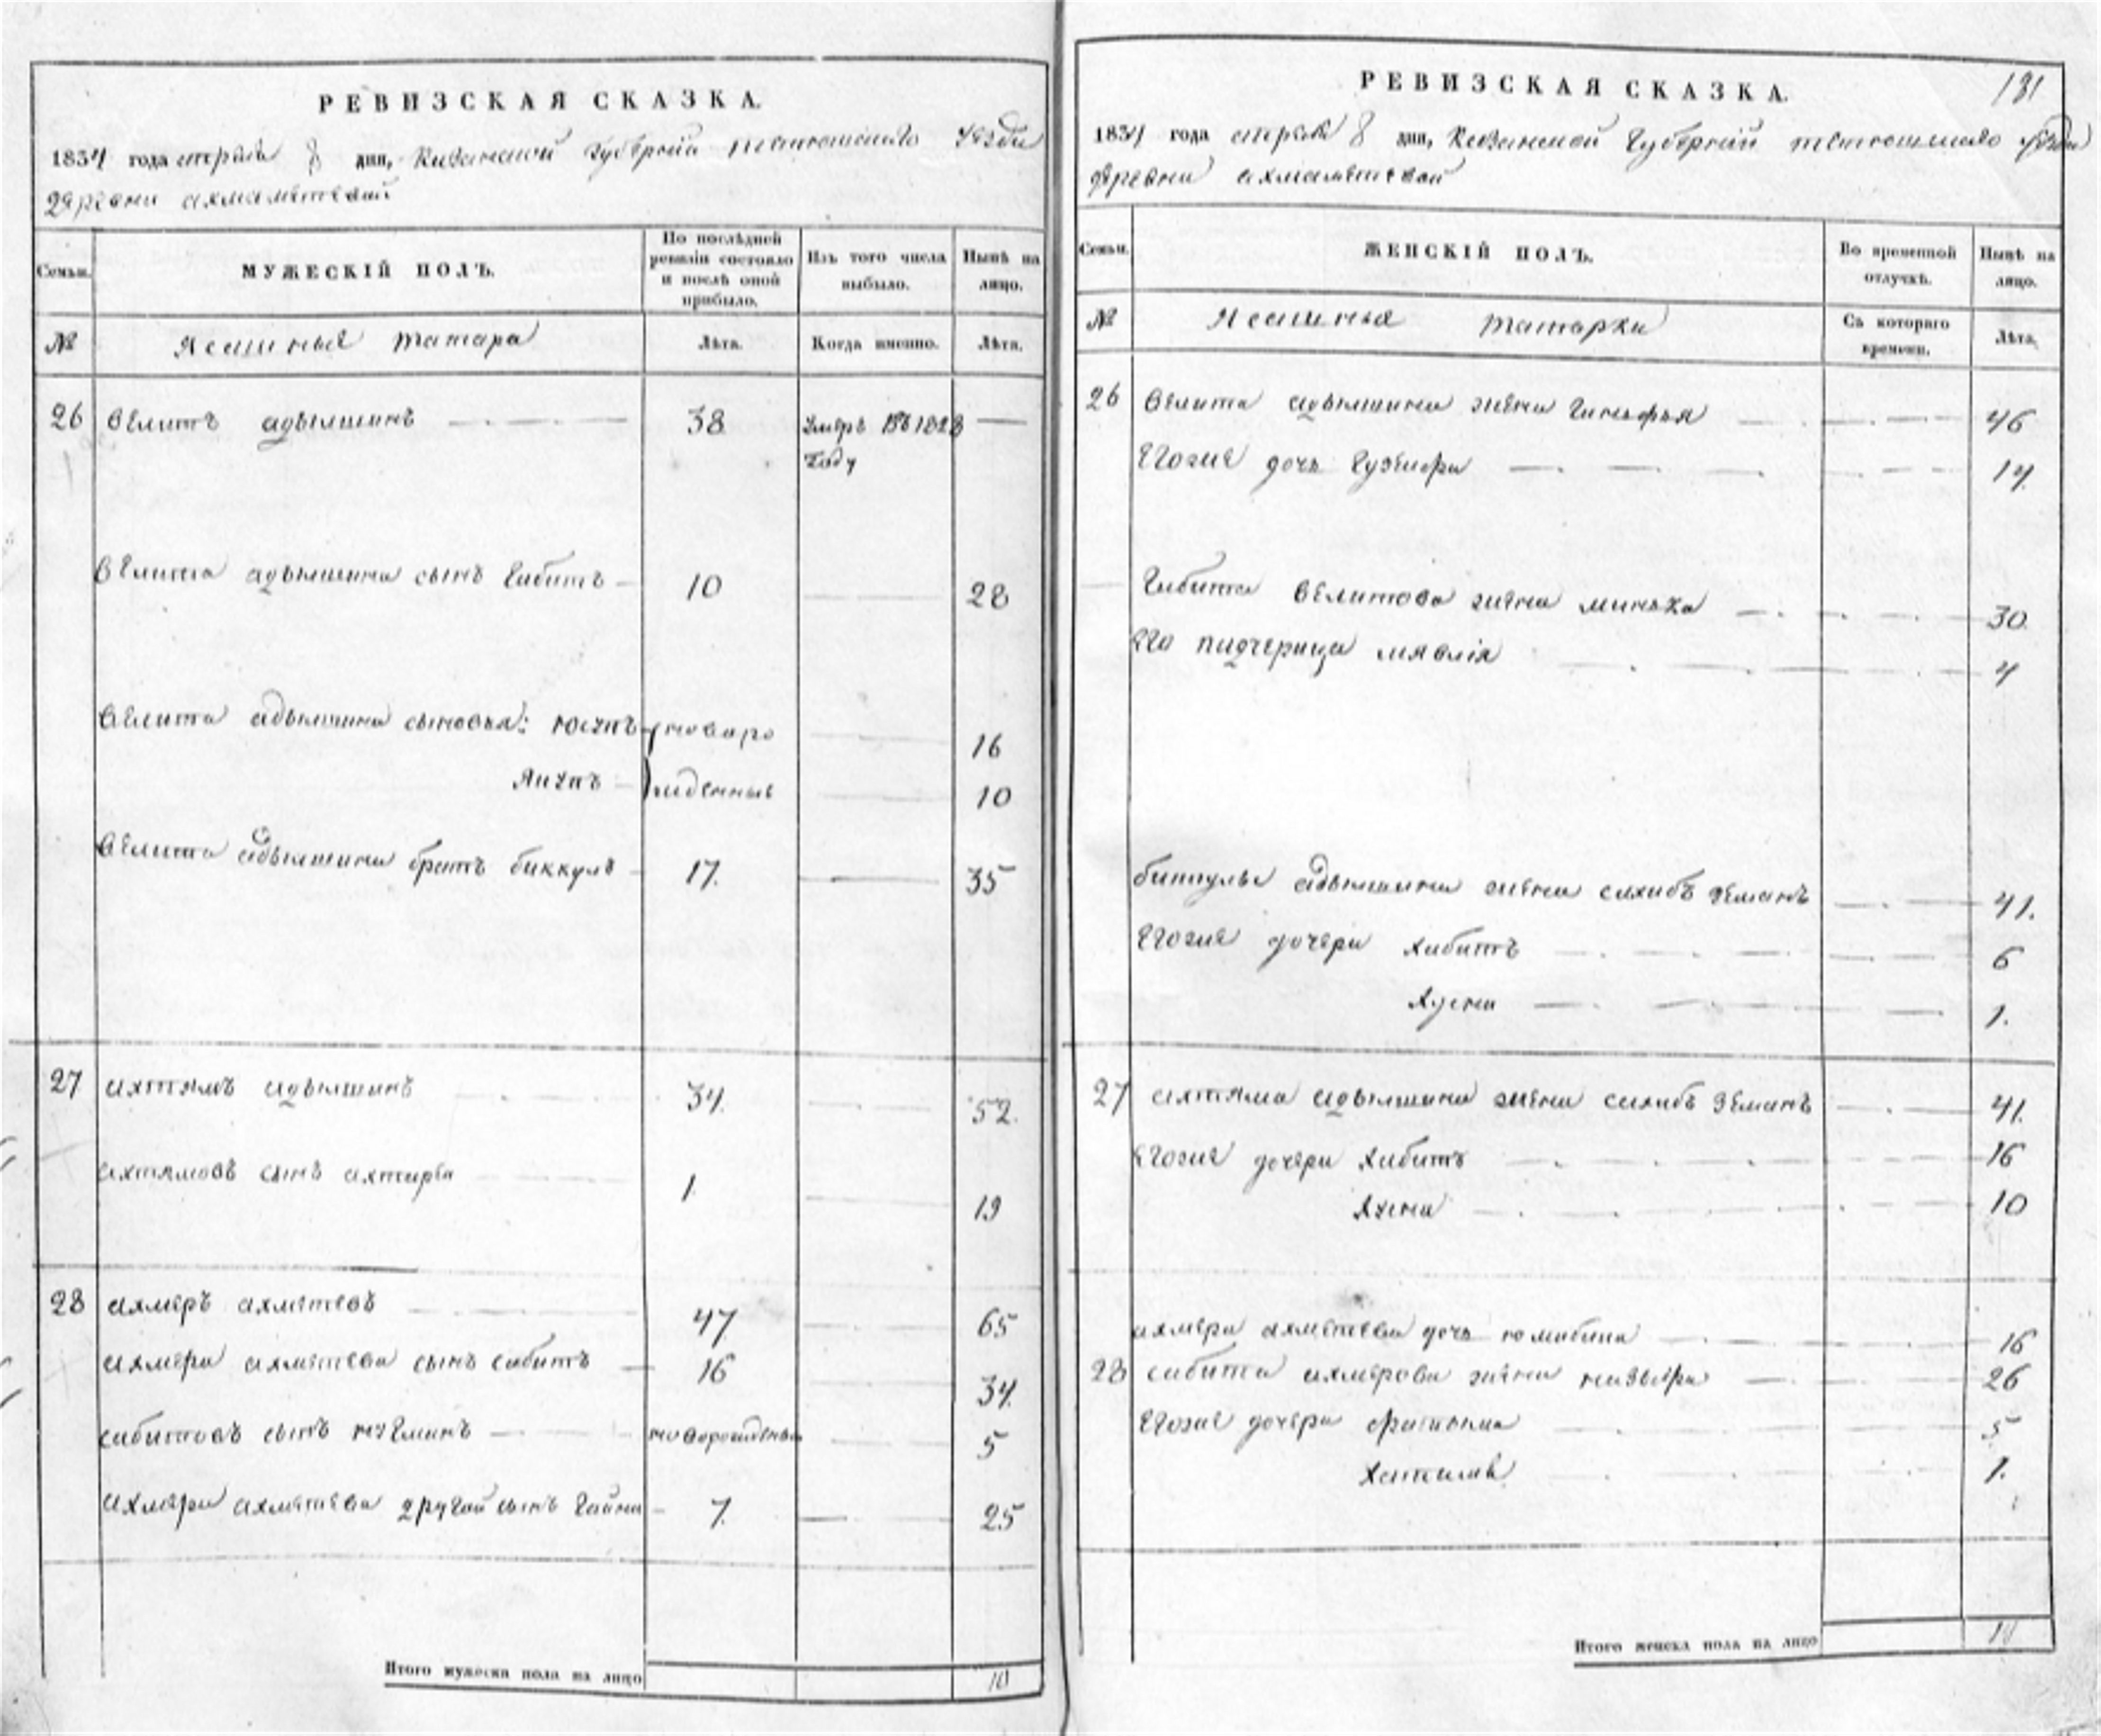 РЕВИЗСКАЯ СКАЗКА.
1834 года апреля 8 дня, Казанской Губернiи тетюшскаго уезда
деревни ахмаметевой
Семьи. МУЖЕСКІЙ ПОЛЪ. По послѣдней ревизіи состояло и послѣ оной прибыло. Изъ того числа выбыло. Нынѣ на лицо.
№ Ясашные татара Лѣта. Когда именно. Лѣта.
26 Велитъ адельшинъ 38 Умеръ въ 1828
году
Велита адельшина сынъ Габитъ 10 28
Велита адельшина сыновья: Юсупъ новаро 16
Якупъ жденные 10
Велита адельшина братъ биккулъ 17. 35
27 ахтямъ адельшинъ 34. 52.
ахтямовъ сынъ 1 19
28 ахмеръ ахметевъ 47 65
ахмера ахметева сынъ сабитъ 16 34.
сабитовъ сынъ новорожденный 5
ахмера ахметева другой сынъ Гайна 7. 25
Итого мужеска пола на лицо 10
РЕВИЗСКАЯ СКАЗКА. 131
1834 года апреля 8 дня, Казанской Губернiй тетюшскаго уезда
деревни ахмаметевой
Семьи. ЖЕНСКІЙ ПОЛЪ. Во временной отлучкѣ. Нынѣ на лицо.
№ Ясашные татарки Съ котораго времени. Лѣта.
26 Велита адельшина жена 46
Его же дочь 14.
Габита Велитова жена 30.
Его падчерица мавлiя 4
адельшина жена сахибъ земанъ 41.
Его же дочери хабитъ 6
1.
27 ахтяма адельшина жена сахибъ земанъ 41.
Его же дочери хабитъ 16
10
ахмера ахметева дочь 16
28 сабита ахмерова жена 26
Его же дочери 5
1.
Итого женска пола на лицо